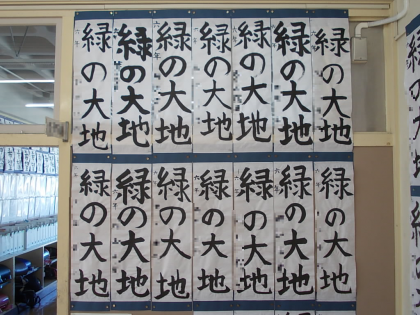 緑の大地
緑の大地
緑の大地
緑の大地
緑の大地
緑の大地
緑の大地
緑の大地
緑の大地
緑の大地
緑の大地
緑の大地
緑の大地
緑の大地